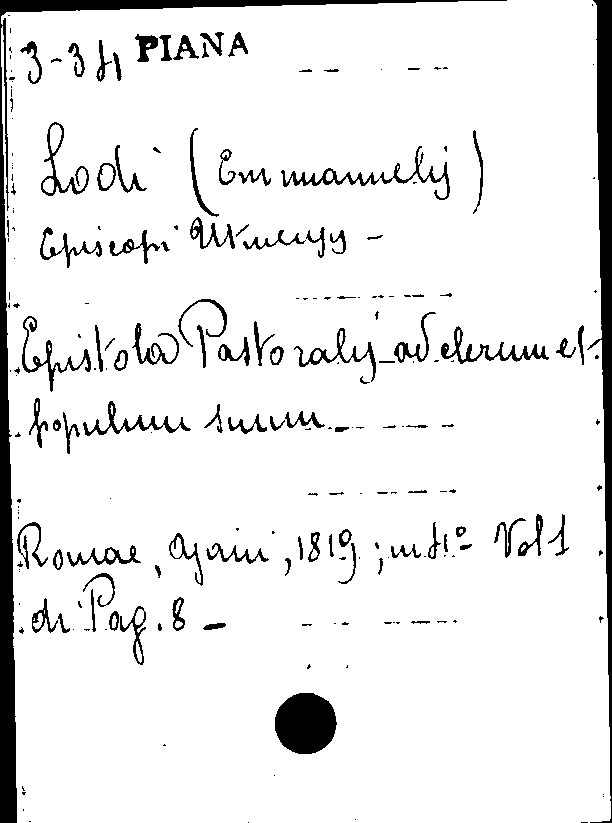 3-34 PIANA
Lodi (Emmanuelis)
Episcopi Utinensis -
Epistola Pastoralis ad clerum et
populum suum -
Romae, Ajani, 1819; in 4º Vol 1
di Pag. 8 -